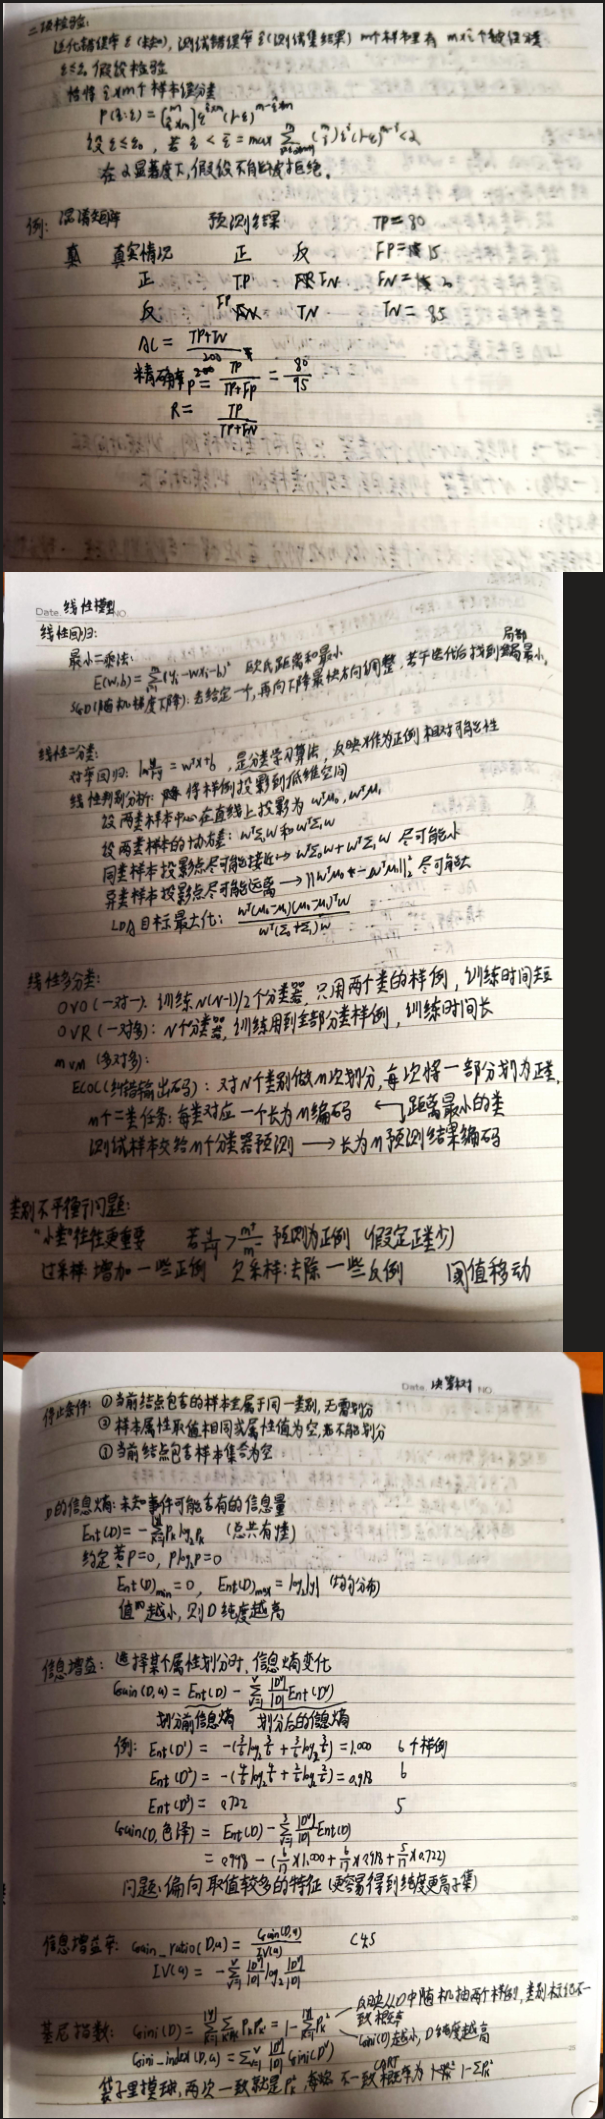 二项检验:
泛化错误率 ε (未知), 测试错误率 ε̂ (测试集结果) m个样本里有 m×ε̂ 个被误分类
ε≤ε₀ 假设检验
恰将 ε̂×m个样本误分类
设 ε≤ε₀, 若
在 α 显著度下, 假设不能被拒绝.
例: 混淆矩阵 预测结果 TP=80
真实情况 正 反 FP=15
正 TP FN FN=
反 FP TN TN=85
AC = TP+TN / 200
精确率 P = TP / TP+FP = 80 / 95
R = TP / TP+FN
Date. 线性模型 NO.
线性回归:
最小二乘法:
E(w,b) = Σ(yᵢ-wxᵢ-b)² 欧氏距离和最小
SGD(随机梯度下降): 去给定一个, 再向下降最快方向调整, 若干迭代后找到局部最小.
线性二分类:
对率回归: ln y/1-y = wᵀx+b, 是分类学习算法, 反映x作为正例相对可能性
线性判别分析: 将样例投影到低维空间
设两类样本中心在直线上投影为 wᵀμ₀, wᵀμ₁
设两类样本的协方差: wᵀΣ₀w 和 wᵀΣ₁w
同类样本投影点尽可能接近→ wᵀΣ₀w + wᵀΣ₁w 尽可能小
异类样本投影点尽可能远离 → ||wᵀμ₀ - wᵀμ₁||₂² 尽可能大
LDA 目标最大化: wᵀ(μ₀-μ₁)(μ₀-μ₁)ᵀw / wᵀ(Σ₀+Σ₁)w
线性多分类:
OVO (一对一): 训练N(N-1)/2个分类器, 只用两个类的样例, 训练时间短
OVR (一对多): N个分类器, 训练用到全部分类样例, 训练时间长
MVM (多对多):
ECOC(纠错输出码): 对N个类别做M次划分, 每次将一部分划为正类.
M个二类任务: 每类对应一个长为M编码 ← 距离最小的类
测试样本交给M个分类器预测 → 长为M预测结果编码
类别不平衡问题:
"小类"往往更重要 若 y/1-y > m⁺/m⁻ 预测为正例 (假定正类少)
过采样: 增加一些正例 欠采样: 去除一些反例 阈值移动
Date. 决策树 NO.
停止条件: ① 当前结点包含的样本全属于同一类别, 无需划分
② 样本属性取值相同或属性值为空, 不能划分
③ 当前结点包含样本集合为空
D的信息熵: 未知事件可能含有的信息量
Ent(D) = -Σpₖlog₂pₖ (总共有|y|类)
约定若 P=0, Plog₂P=0
Ent(D)min = 0, Ent(D)max = log₂|y| (均匀分布)
值越小, 则 D 纯度越高
信息增益: 选择某个属性划分时, 信息熵变化
Gain(D,a) = Ent(D) - Σ |Dᵛ|/|D| Ent(Dᵛ)
划分前信息熵 划分后的信息熵
例: Ent(D¹) = -(3/6 log₂ 3/6 + 3/6 log₂ 3/6) = 1.000 6个样例
Ent(D²) = -(4/6 log₂ 4/6 + 2/6 log₂ 2/6) = 0.918 6
Ent(D³) = 0.722 5
Gain(D,色泽) = Ent(D) - Σ |Dᵛ|/|D| Ent(D)
= 0.998 - (6/17×1.000 + 6/17×0.918 + 5/17×0.722)
问题: 偏向取值较多的特征 (更容易得到纯度更高子集)
信息增益率: Gain_ratio(D,a) = Gain(D,a) / IV(a) C4.5
IV(a) = -Σ |Dᵛ|/|D| log₂ |Dᵛ|/|D|
基尼指数: Gini(D) = Σ Σ pₖpₖ' = 1-Σpₖ² 反映从D中随机抽两个样例, 类别标记不一致概率
Gini(D)越小, D纯度越高
Gini_index(D,a) = Σ |Dᵛ|/|D| Gini(Dᵛ)
CART
袋子里摸球, 两次一致就是 pₖ², 不一致概率为 1-Σpₖ²